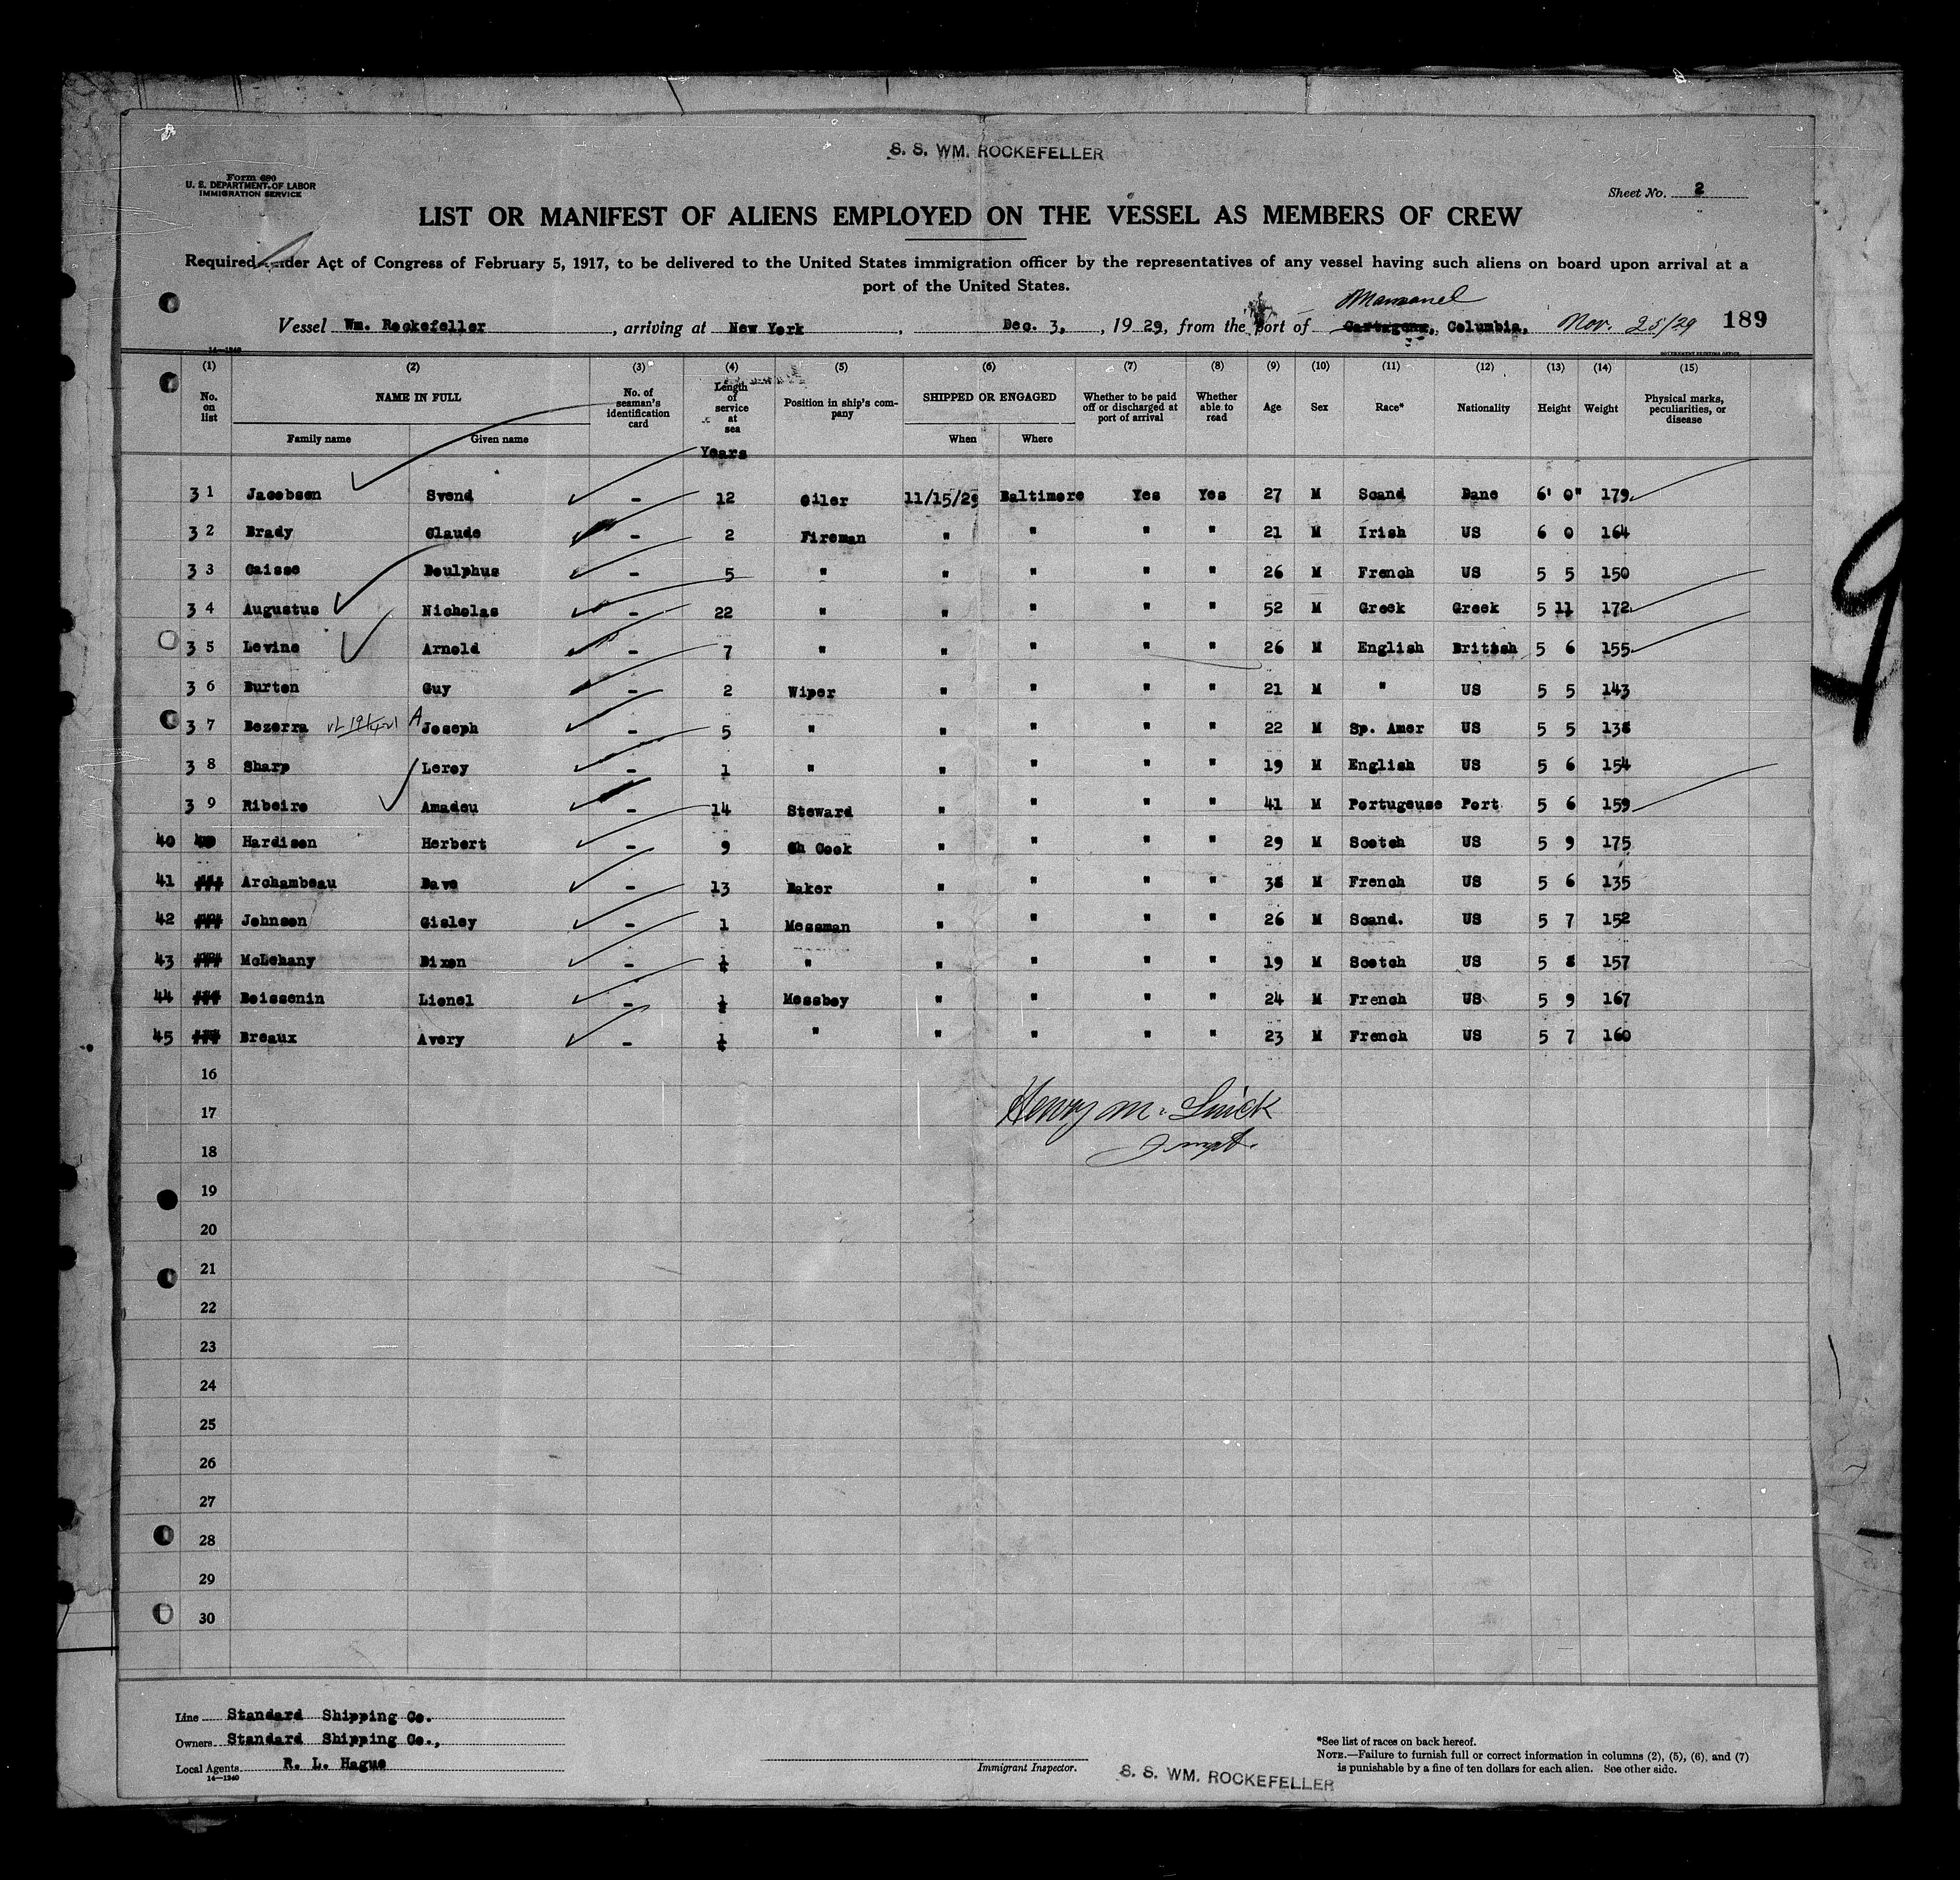 S. S. WM. ROCKEFELLER
Form 680
U. S. DEPARTMENT OF LABOR
IMMIGRATION SERVICE
Sheet No. 2
LIST OR MANIFEST OF ALIENS EMPLOYED ON THE VESSEL AS MEMBERS OF CREW
Required under Act of Congress of February 5, 1917, to be delivered to the United States immigration officer by the representatives of any vessel having such aliens on board upon arrival at a
port of the United States.
Mamonel
Vessel Wm. Rockefeller, arriving at New York, Dec. 3, 1929, from the port of Cartagena, Columbia, Nov. 25/29 189
14—1240 GOVERNMENT PRINTING OFFICE
(1) (2) (3) (4) (5) (6) (7) (8) (9) (10) (11) (12) (13) (14) (15)
No. on list NAME IN FULL No. of seaman's identification card Length of service at sea Position in ship's company SHIPPED OR ENGAGED Whether to be paid off or discharged at port of arrival Whether able to read Age Sex Race* Nationality Height Weight Physical marks, peculiarities, or disease
Family name Given name When Where
Years
31 Jacobsen Svend - 12 Oiler 11/15/29 Baltimore Yes Yes 27 M Scand Dane 6' 0" 179
32 Brady Claude - 2 Fireman " " " " 21 M Irish US 6 0 164
33 Caisse Deulphus - 5 " " " " " 26 M French US 5 5 150
34 Augustus Nicholas - 22 " " " " " 52 M Greek Greek 5 11 172
35 Levine Arnold - 7 " " " " " 26 M English British 5 6 155
36 Burton Guy - 2 Wiper " " " " 21 M " US 5 5 143
37 Bezerra A Joseph - 5 " " " " " 22 M Sp. Amer US 5 5 138
38 Sharp Leroy - 1 " " " " " 19 M English US 5 6 154
39 Ribeiro Amadeu - 14 Steward " " " " 41 M Portugeuse Port 5 6 159
40 40 Hardison Herbert - 9 Ch Cook " " " " 29 M Scotch US 5 9 175
41 Archambeau Dave - 13 Baker " " " " 38 M French US 5 6 135
42 Johnson Gisley - 1 Messman " " " " 26 M Scand. US 5 7 152
43 McLehany Dixon - " " " " " 19 M Scotch US 5 8 157
44 Boissenin Lionel - Messboy " " " " 24 M French US 5 9 167
45 Breaux Avery - " " " " " 23 M French US 5 7 160
16
17
Henry M.
18
19
20
21
22
23
24
25
26
27
28
29
30
Line Standard Shipping Co.
Owners Standard Shipping Co.,
Local Agents R. L. Hague
14—1240
Immigrant Inspector.
S. S. WM. ROCKEFELLER
*See list of races on back hereof.
NOTE.—Failure to furnish full or correct information in columns (2), (5), (6), and (7)
is punishable by a fine of ten dollars for each alien. See other side.